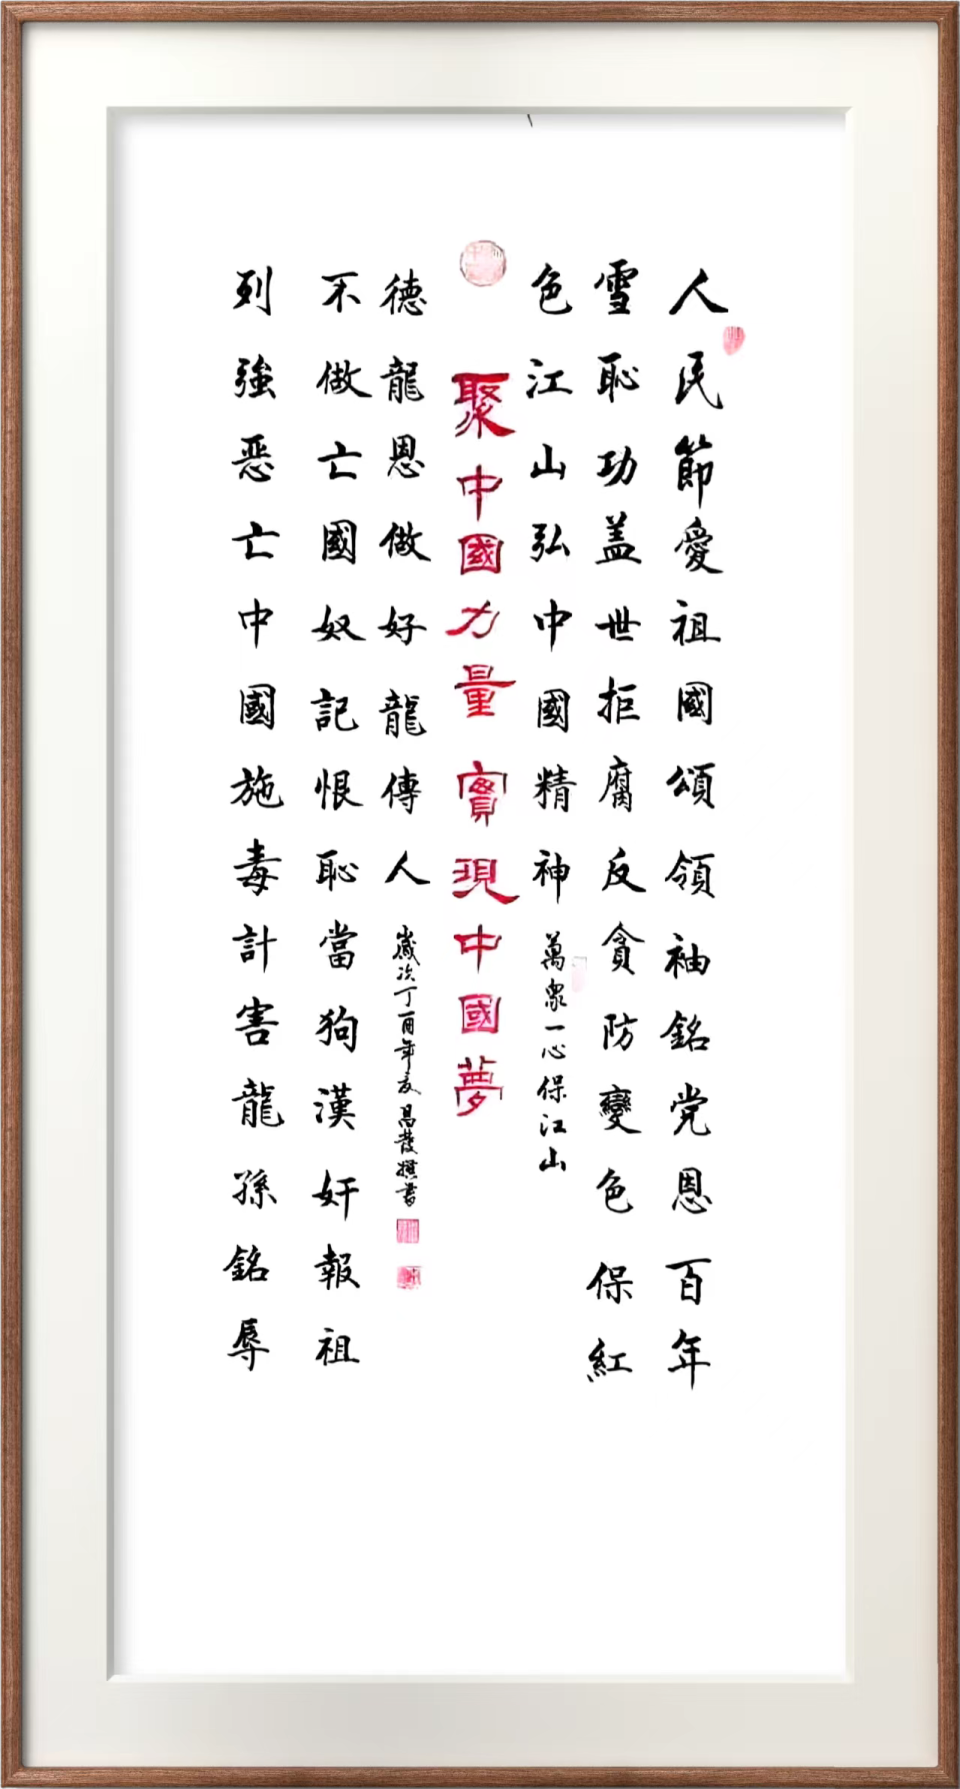 人民節愛祖國頌領袖銘党恩百年
雪恥功盖世拒腐反貪防變色保紅
色江山弘中國精神
萬衆一心保江山
聚中國力量實現中國夢
德龍恩做好龍傳人
歲次丁酉年夏昌發撰書
不做亡國奴記恨恥當狗漢奸報祖
列強恶亡中國施毒計害龍孫銘辱